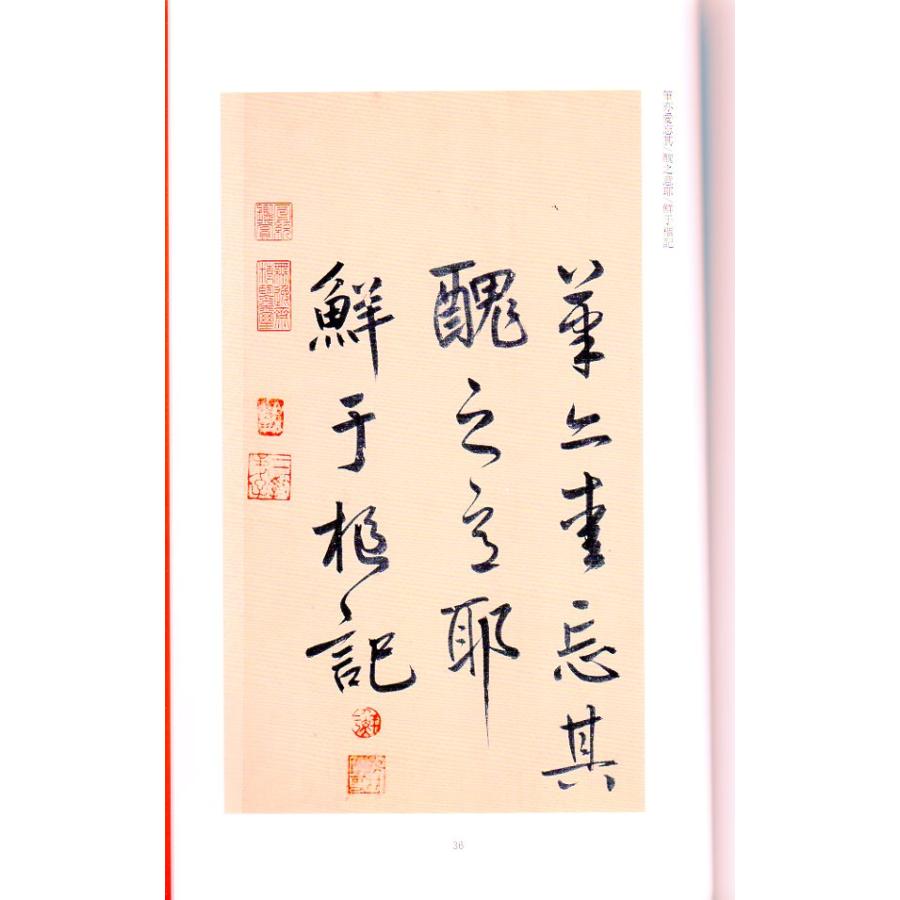 筆亦愛忘其/醜之意耶/鮮于樞記
筆亦愛忘其
醜之意耶
鮮于樞記
36